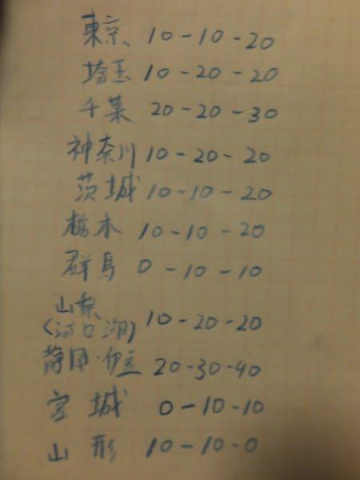 東京 10-10-20
埼玉 10-20-20
千葉 20-20-30
神奈川 10-20-20
茨城 10-10-20
栃木 10-10-20
群馬 0-10-10
山梨
(河口湖) 10-20-20
静岡・伊豆 20-30-40
宮城 0-10-10
山形 10-10-0